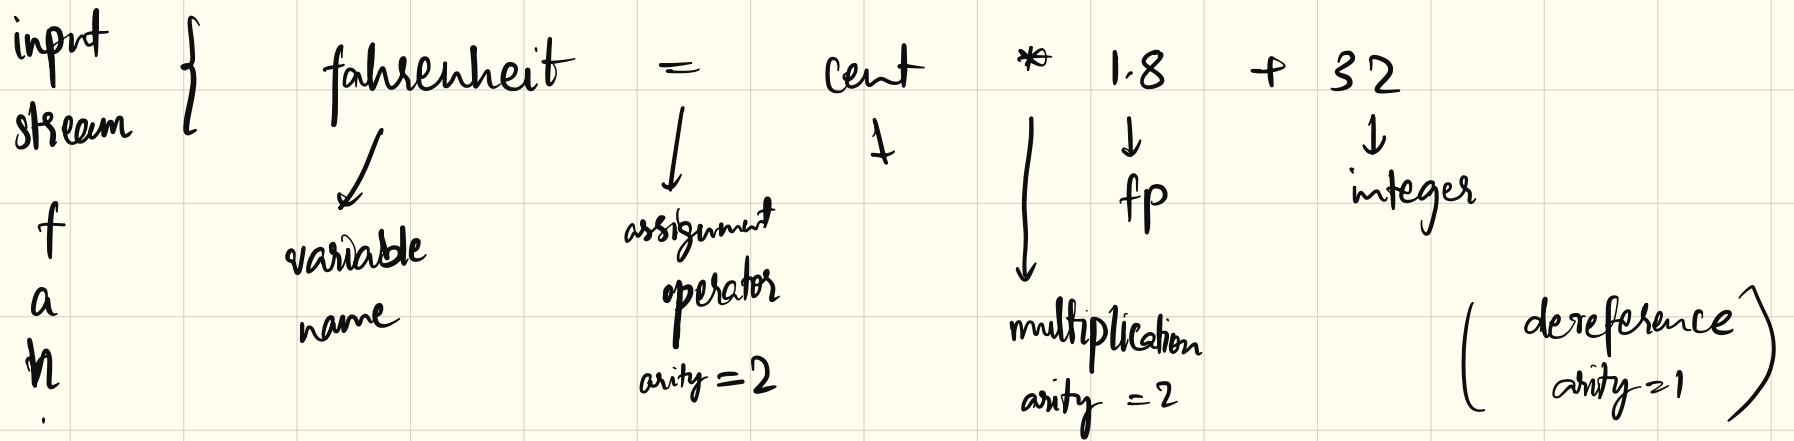 input
stream
fahrenheit = cent * 1.8 + 32
fp
integer
variable
name
assignment
operator
arity = 2
multiplication
arity = 2
( dereference
arity = 1 )
f
a
h
.